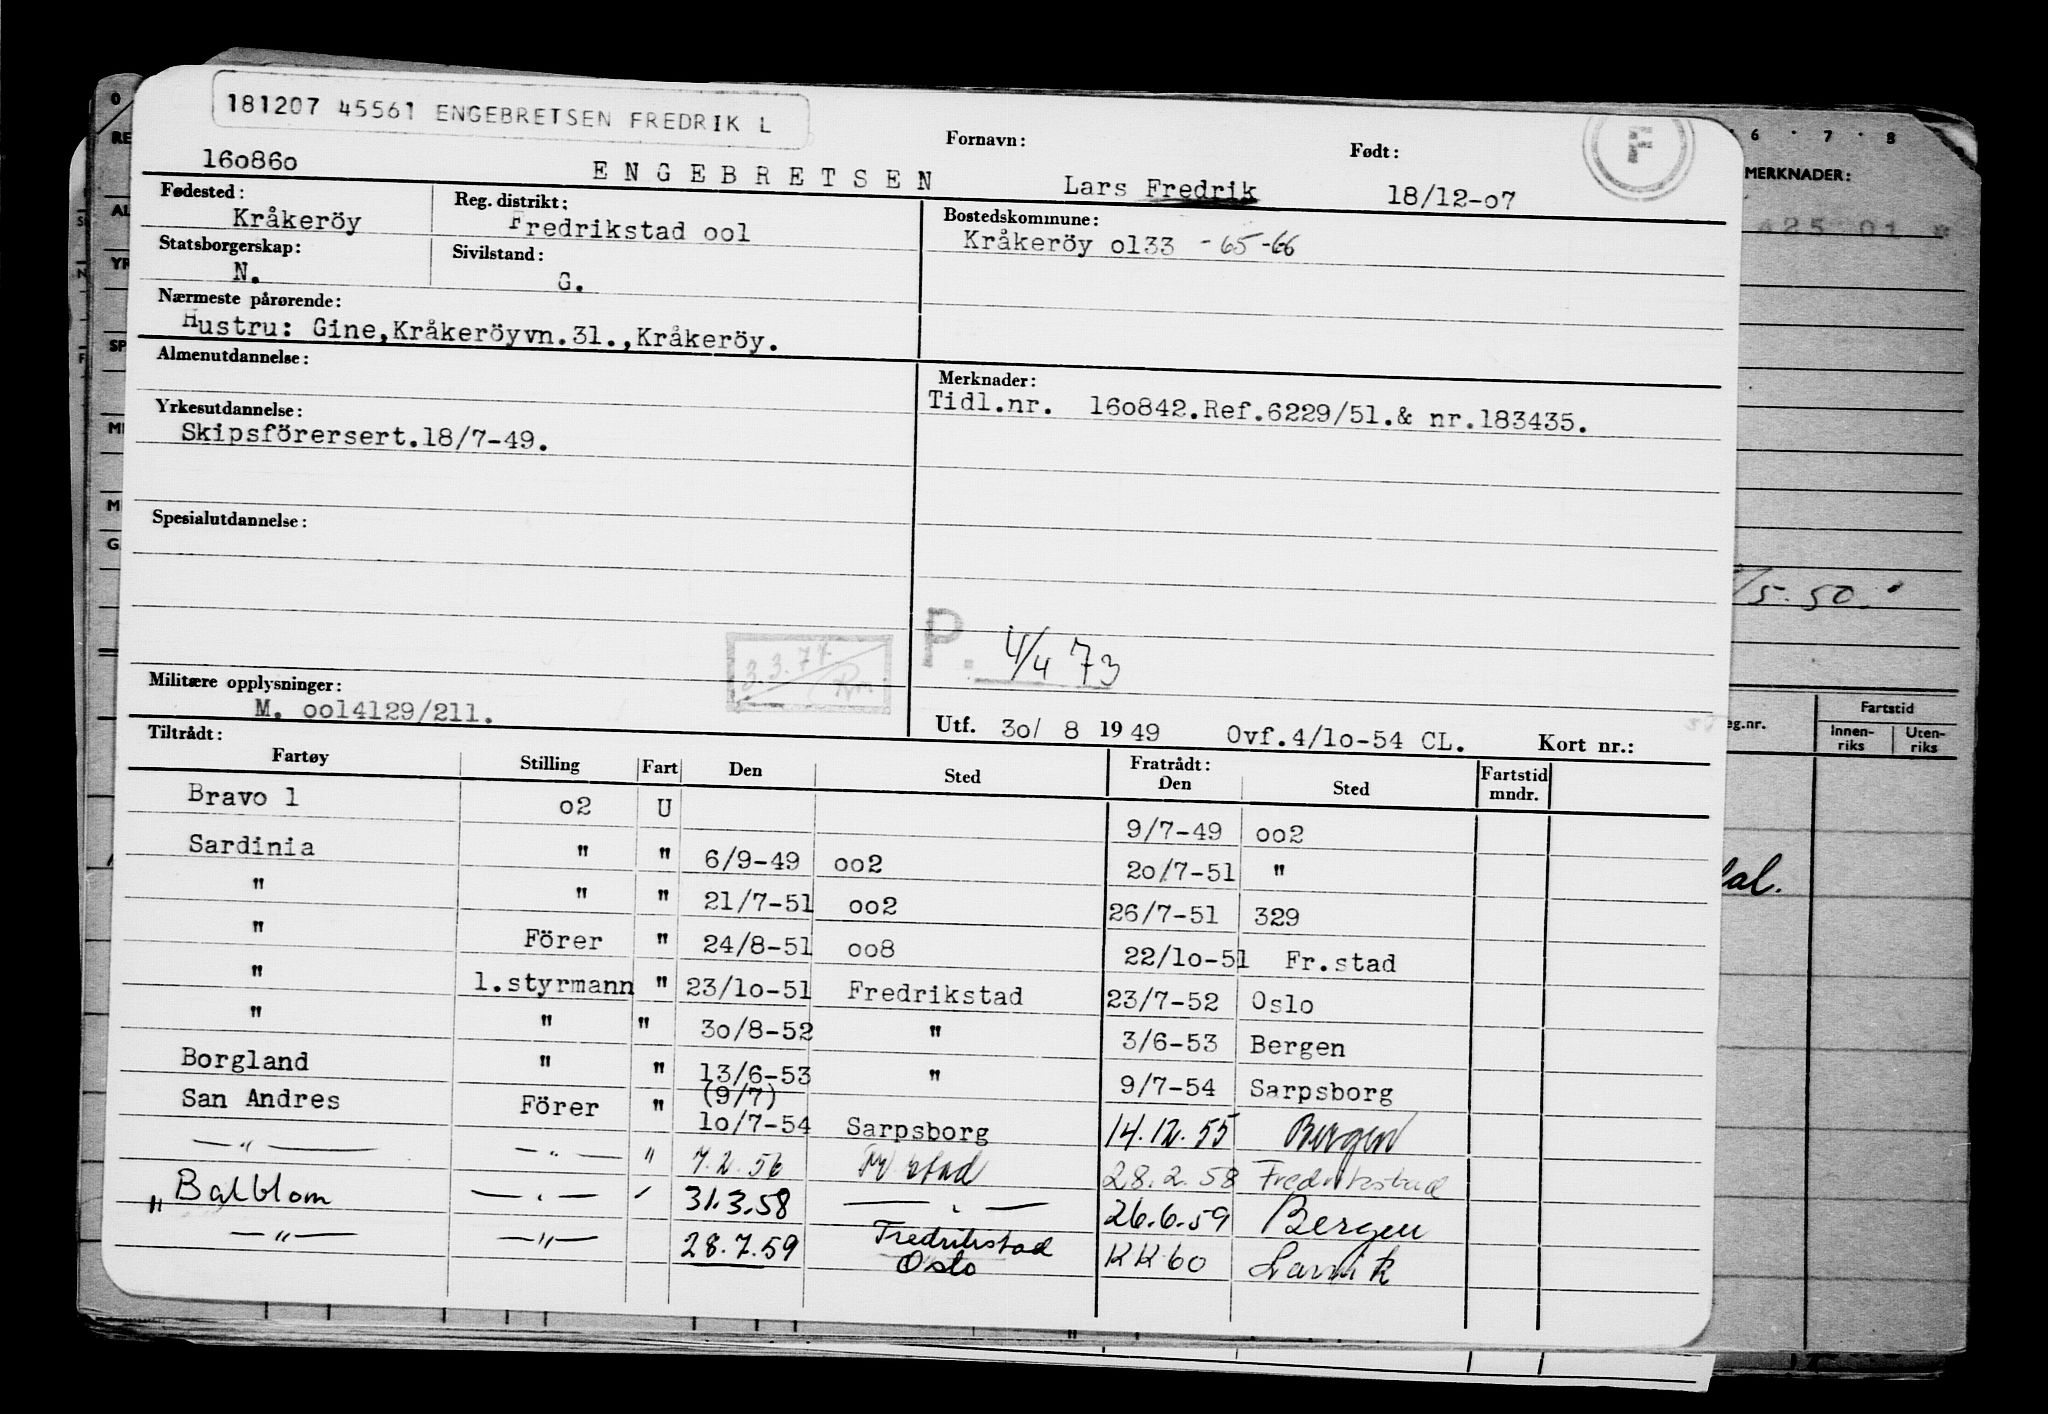 181207 45561 ENGEBRETSEN FREDRIK L
F
Fornavn: Født:
160860 ENGEBRETSEN Lars Fredrik 18/12-07
Fødested: Reg. distrikt: Bostedskommune:
Kråkeröy Fredrikstad ool Kråkeröy o133 -65-66
Statsborgerskap: Sivilstand:
N. G.
Nærmeste pårørende:
Hustru: Gine,Kråkeröyvn.31.,Kråkeröy.
Almenutdannelse: Merknader:
Tidl.nr. 160842.Ref.6229/51.& nr.183435.
Yrkesutdannelse:
Skipsförersert.18/7-49.
Spesialutdannelse:
P. 4/4 73
3.3.77
Militære opplysninger:
M. oo14129/211.
Utf. 30/ 8 1949 Ovf.4/10-54 CL. Kort nr.:
Tiltrådt: Fratrådt:
Fartøy Stilling Fart Den Sted Den Sted Fartstid mndr.
Bravo 1 o2 U 9/7-49 oo2
Sardinia " " 6/9-49 oo2 20/7-51 "
" " " 21/7-51 oo2 26/7-51 329
" Förer " 24/8-51 oo8 22/10-51 Fr.stad
" 1.styrmann " 23/10-51 Fredrikstad 23/7-52 Oslo
" " " 30/8-52 " 3/6-53 Bergen
Borgland " " 13/6-53 " 9/7-54 Sarpsborg
(9/7)
San Andres Förer " 10/7-54 Sarpsborg 14.12.55 Bergen
—"— —"— " 7.2.56 Fr stad 28.2.58 Fredrikstad
" Balblom —"— " 31.3.58 —"— 26.6.59 Bergen
—"— —"— 28.7.59 Fredrikstad Oslo KK60 Larvik
MERKNADER:
6 · 7 · 8
425 01
/5-50
eg.nr. Fartstid
Innen-riks Uten-riks
dal.